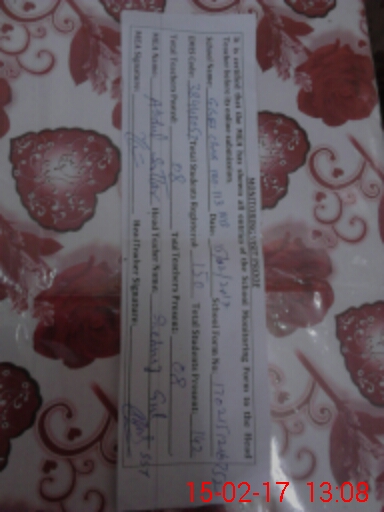 MONITORING VISIT PROOF
It is certified that the MEA has shown all entries of the School Monitoring Form to the Head
Teacher before its online submission.
School Name: Chak No 113 Date: 15/02/2017 School Form No.
EMIS Code: Total Students Registered: 150 Total Students Present: 142
Total Teachers Posted: 08 Total Teachers Present: 08
MEA Name: Abdul Sattar Head Teacher Name: Gul
MEA Signature: Head Teacher Signature: SST
15-02-17 13:08